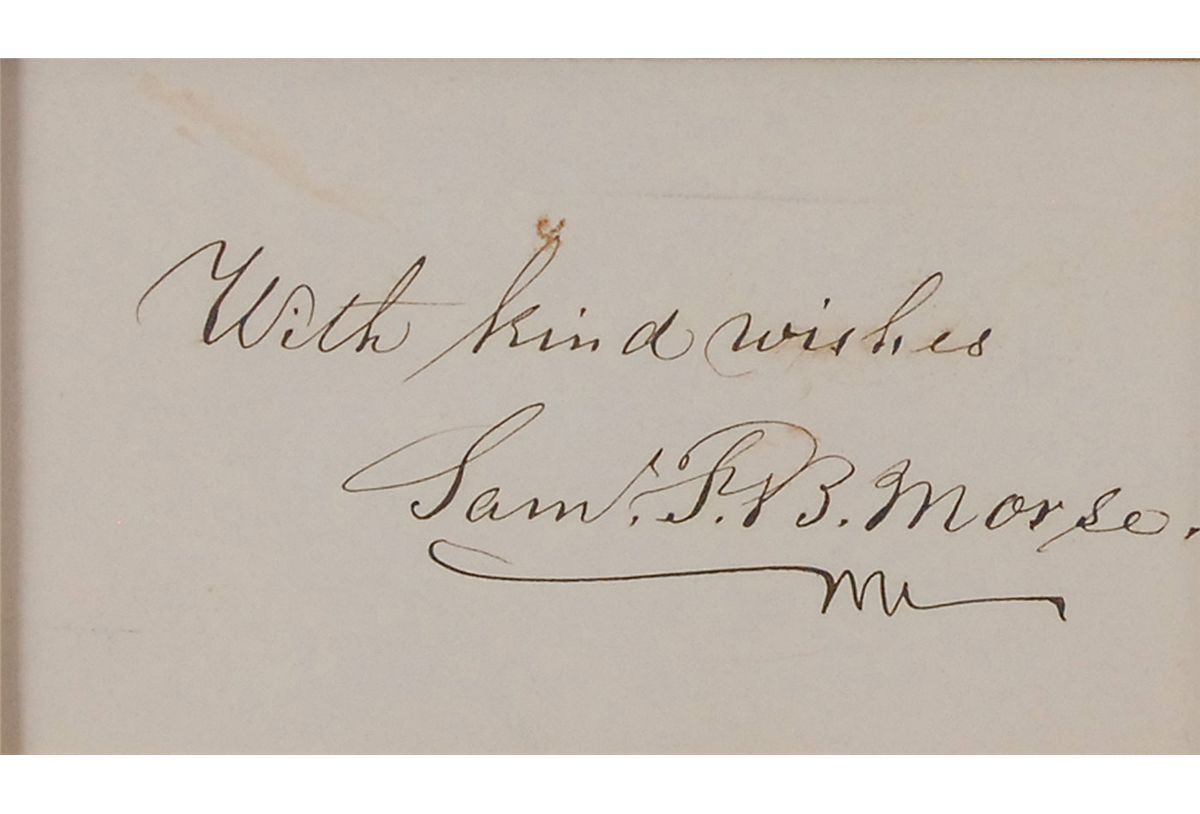 With kind wishes
Saml. F. B. Morse.